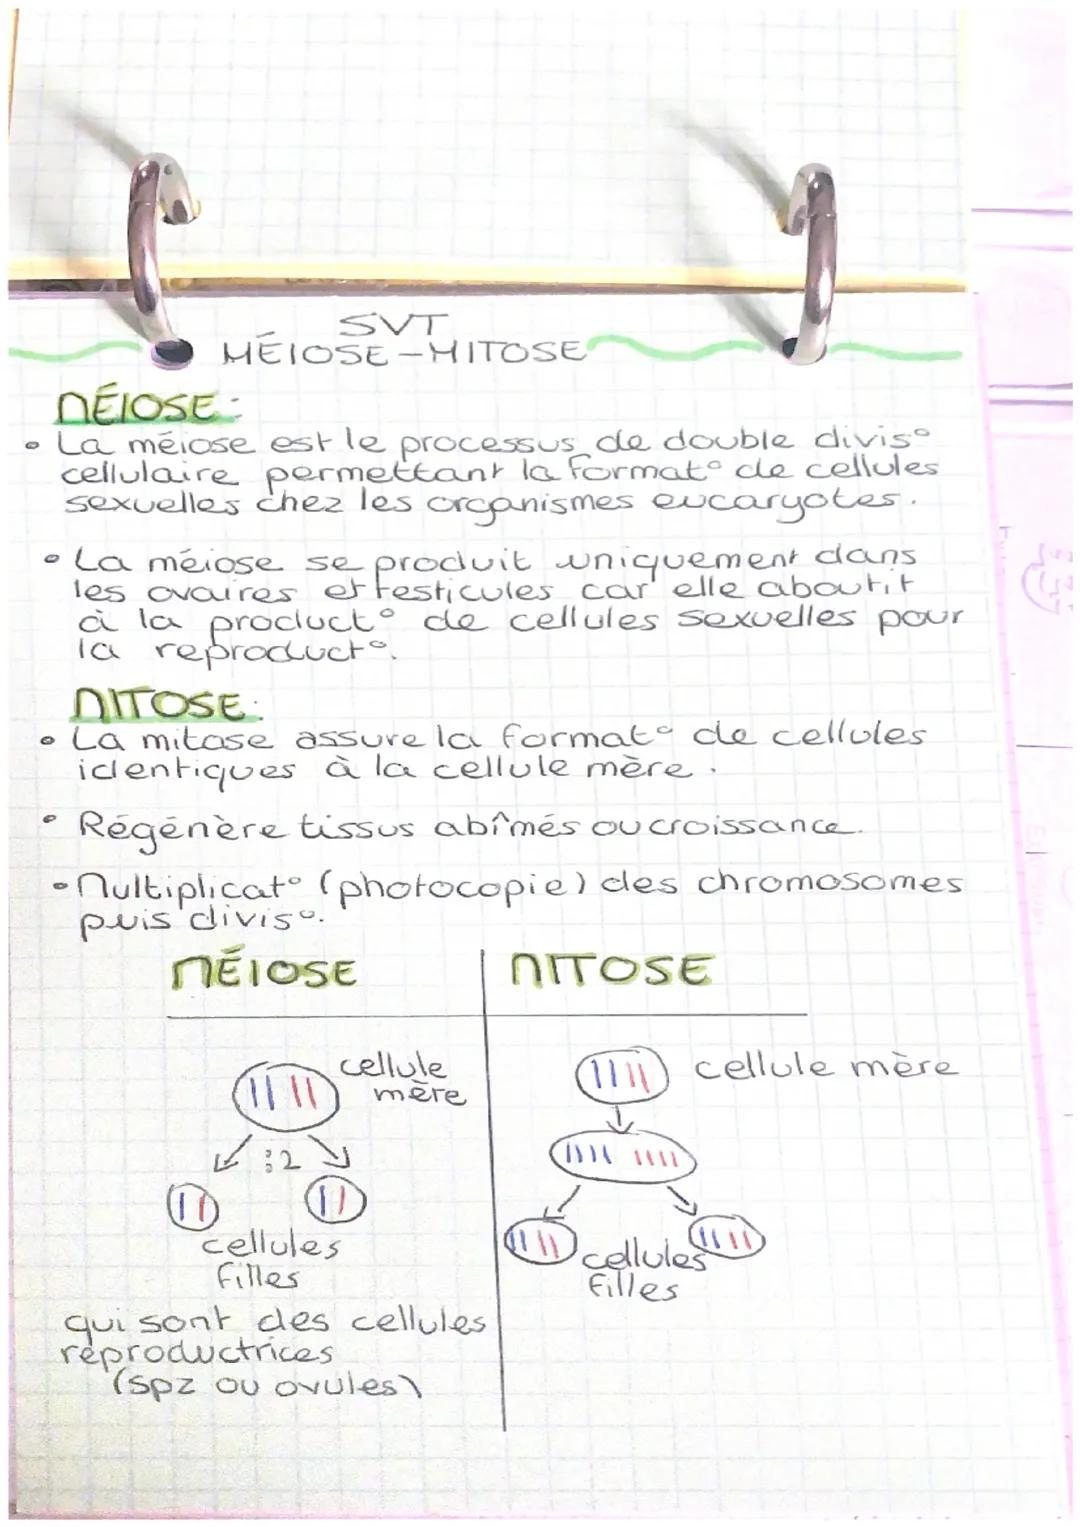 SVT
MÉIOSE-MITOSE
MÉIOSE:
• La méiose est le processus de double divis°
cellulaire permettant la format° de cellules
sexuelles chez les organismes eucaryotes.
• La méiose se produit uniquement dans
les ovaires et testicules car elle aboutit
à la product° de cellules sexuelles pour
la reproduct°.
MITOSE:
• La mitose assure la format° de cellules
identiques à la cellule mère.
• Régénère tissus abîmés ou croissance.
• Multiplicat° (photocopie) des chromosomes
puis divis°.
MÉIOSE
MITOSE
cellule
mère
:2
cellules
filles
qui sont des cellules
reproductrices
(spz ou ovules)
cellule mère
cellules
filles